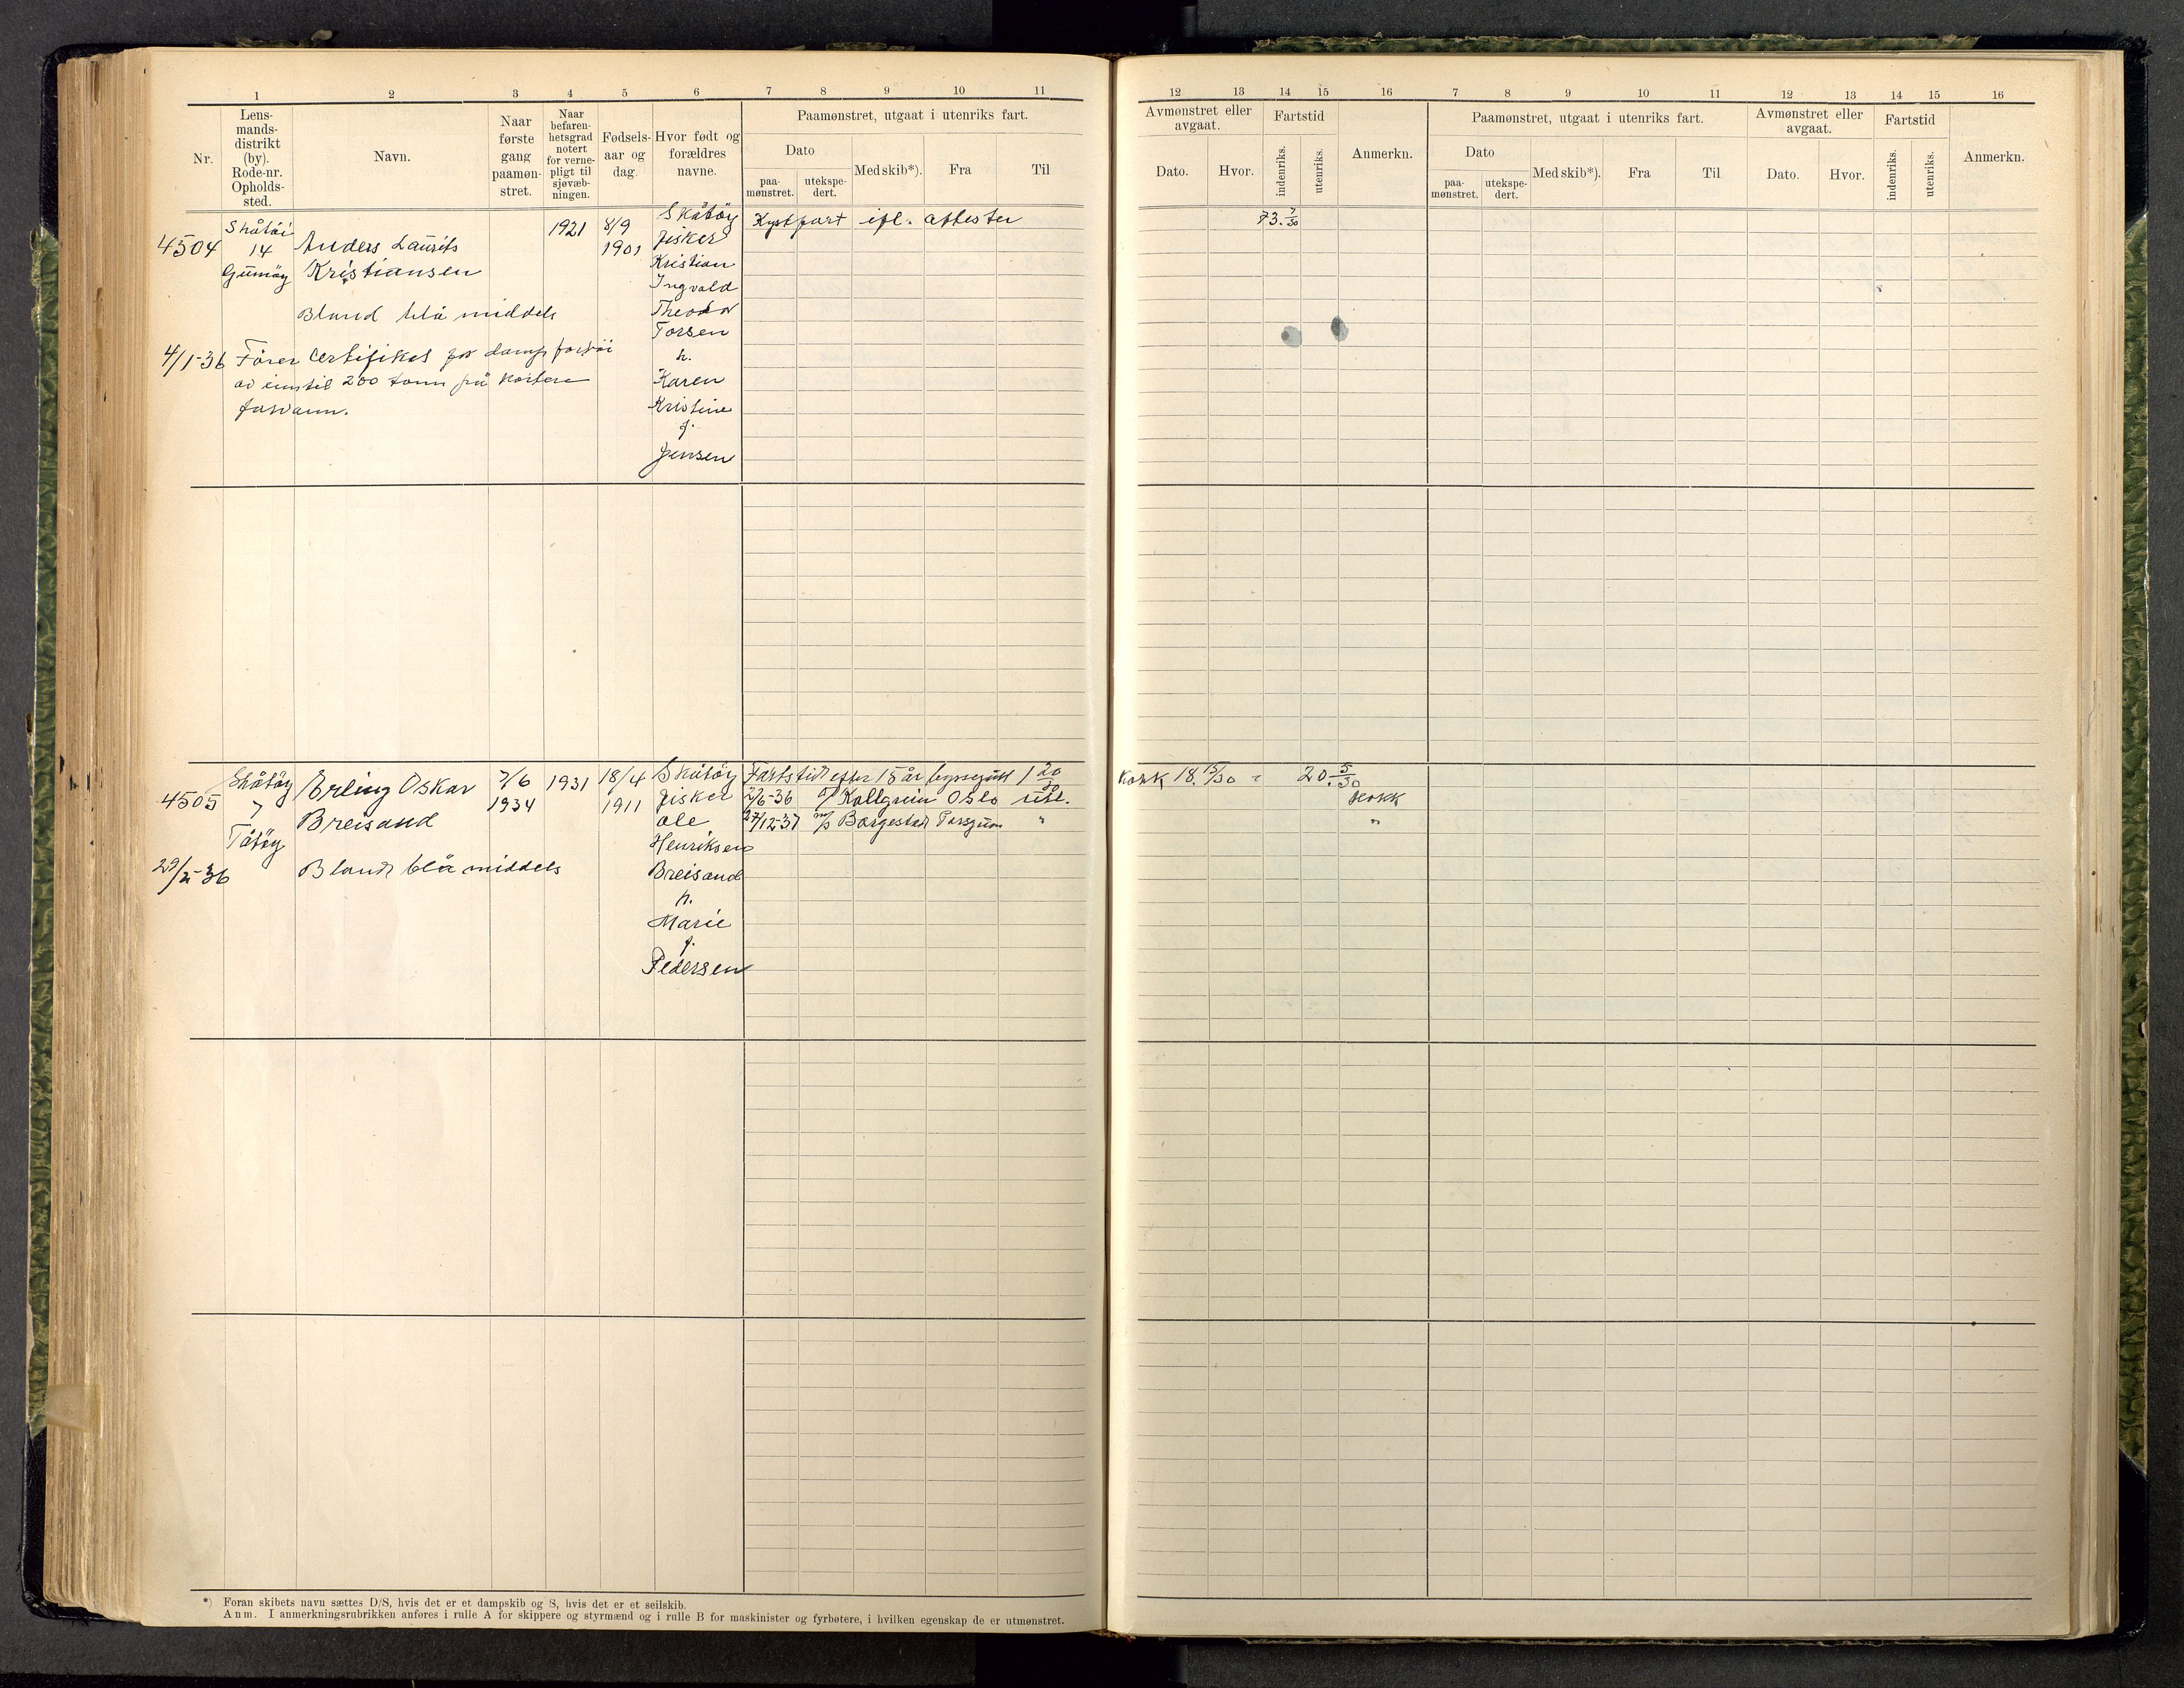 1 2 3 4 5 6 7 8 9 10 11
Nr.
Lens-
mands-
distrikt
(by).
Rode-nr.
Opholds-
sted.
Navn.
Naar
første
gang
paamøn-
stret.
Naar
befaren-
hetsgrad
notert
for verne-
pligt til
sjøvæb-
ningen.
Fødsels-
aar og
dag.
Hvor født og
forældres
navne.
Paamønstret, utgaat i utenriks fart.
Dato
paa-
mønstret.
utekspe-
dert.
Med skib*).
Fra
Til
4504
Skåtøi
14
Gumøy
Anders Laurits
Kristiansen
Blond blå middels
1921
8/9
1901
Skåtöy
fisker
Kristian
Ingvald
Theodor
Torsen
h.
Karen
Kristine
f.
Jensen
Kystfart ifl. attester
4/1-36 Förer certifikat for damp fartöi
av inntil 200 tonn på kortere
farvann.
4505
Skåtöy
7
Tåtöy
29/5-36
Erling Oskar
Breisand
Blond blå middels
7/6
1934
1931
18/4
1911
Skåtöy
fisker
Ole
Henriksen
Breisand
h.
Marie
f.
Pedersen
Fartstid efter 15 år byssegutt 1 20/30
2/6-36 Kollgrein Oslo utl.
27/12-37 m/s Borgestad Porsgrun "
*) Foran skibets navn sættes D/S, hvis det er et dampskib og S, hvis det er et seilskib.
Anm. I anmerkningsrubrikken anføres i rulle A for skippere og styrmænd og i rulle B for maskinister og fyrbøtere, i hvilken egenskap de er utmønstret.
12 13 14 15 16 7 8 9 10 11 12 13 14 15 16
Avmønstret eller
avgaat.
Dato.
Hvor.
Fartstid
indenriks.
utenriks.
Anmerkn.
Paamønstret, utgaat i utenriks fart.
Dato
paa-
mønstret.
utekspe-
dert.
Med skib*).
Fra
Til
Avmønstret eller
avgaat.
Dato.
Hvor.
Fartstid
indenriks.
utenriks.
Anmerkn.
73. 7/30
Kokk 18. 15/30 = 20. 5/30
Kokk
"